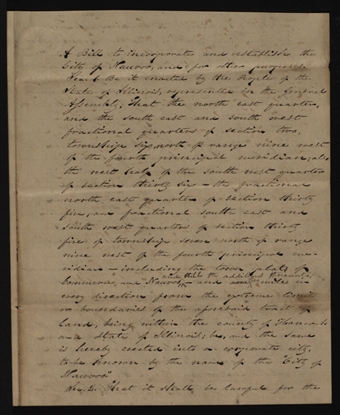 A Bill to incorporate and establish the
City of Nauvoo, and for other purposes
Sec. 1 Be it enacted by the People of the
State of Illinois, represented in the General
Assembly, That the north east quarter,
and the south east and south west
fractional quarters of section two,
township six north of range nine west
of the fourth principal meridian, also
the west half of the south west quarter
of section thirty six — the fractional
north east quarter of section thirty
five, and fractional south east and
south west quarters of section thirty
five of township seven north of range
nine west of the fourth principal me-
ridian — including the town plats of
and miles
every direction from the extreme limits
or boundaries of the aforesaid tract of
Land, being within the county of Hancock
and State of Illinois, be, and the same
is hereby erected into a corporate city,
to be known by the name of the "City of
Nauvoo"
Sec. 2. That it shall be lawful for the